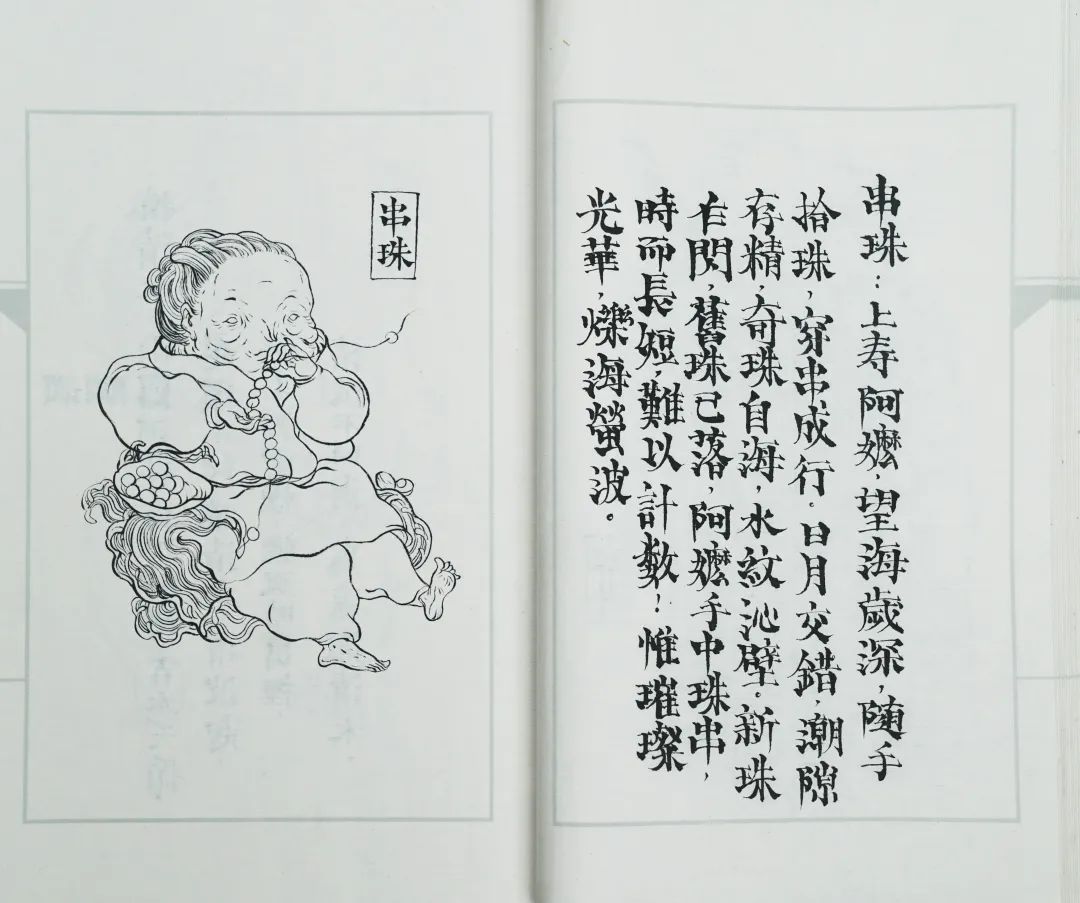 串珠：上寿阿嬷，望海歲深，随手
拾珠，穿串成行。日月交錯，潮隙
存精，奇珠自海，水紋沁壁。新珠
乍閃，舊珠已落，阿嬷手中珠串，
時而長短，難以計数！惟璀璨
光華，爍海螢波。
串珠